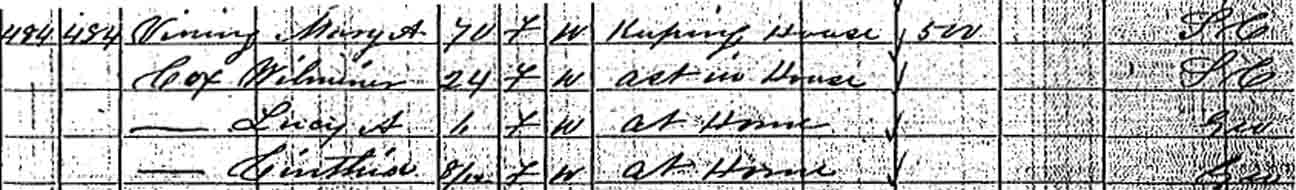 484 484 Vining Mary A 70 F W Keeping House 500 S C
Cox Wilminer 24 F W asst in House S C
— Lucy A 1 F W at Home Geo
— Cinthia 8/12 F W at Home Geo